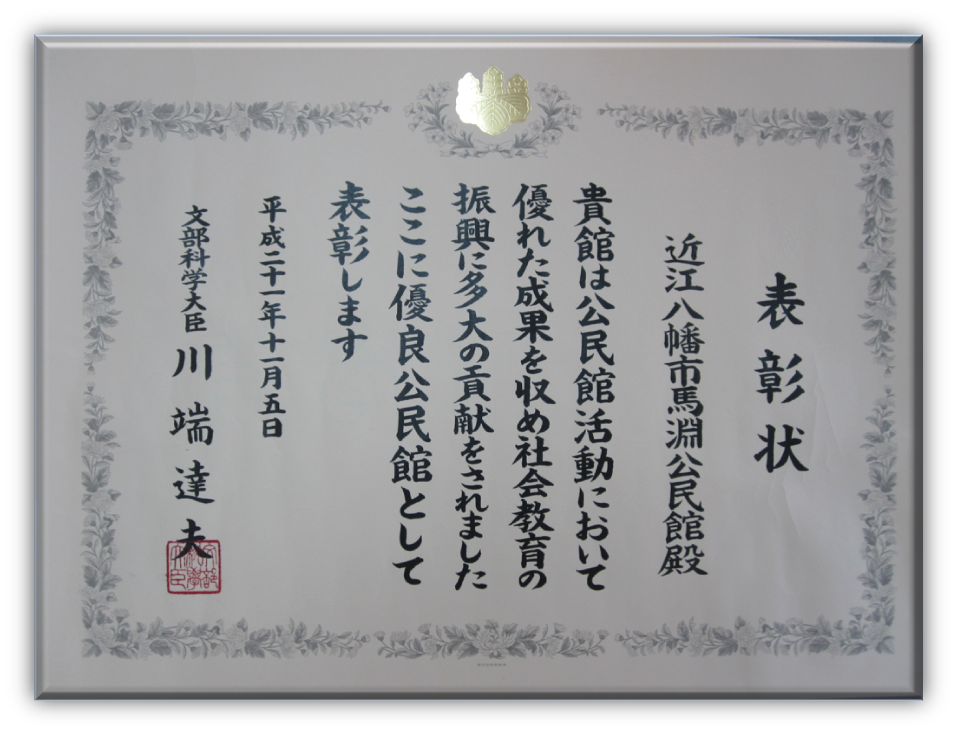 表彰状
近江八幡市馬淵公民館殿
貴館は公民館活動において
優れた成果を収め社会教育の
振興に多大の貢献をされました
ここに優良公民館として
表彰します
平成二十一年十一月五日
文部科学大臣 川端達夫